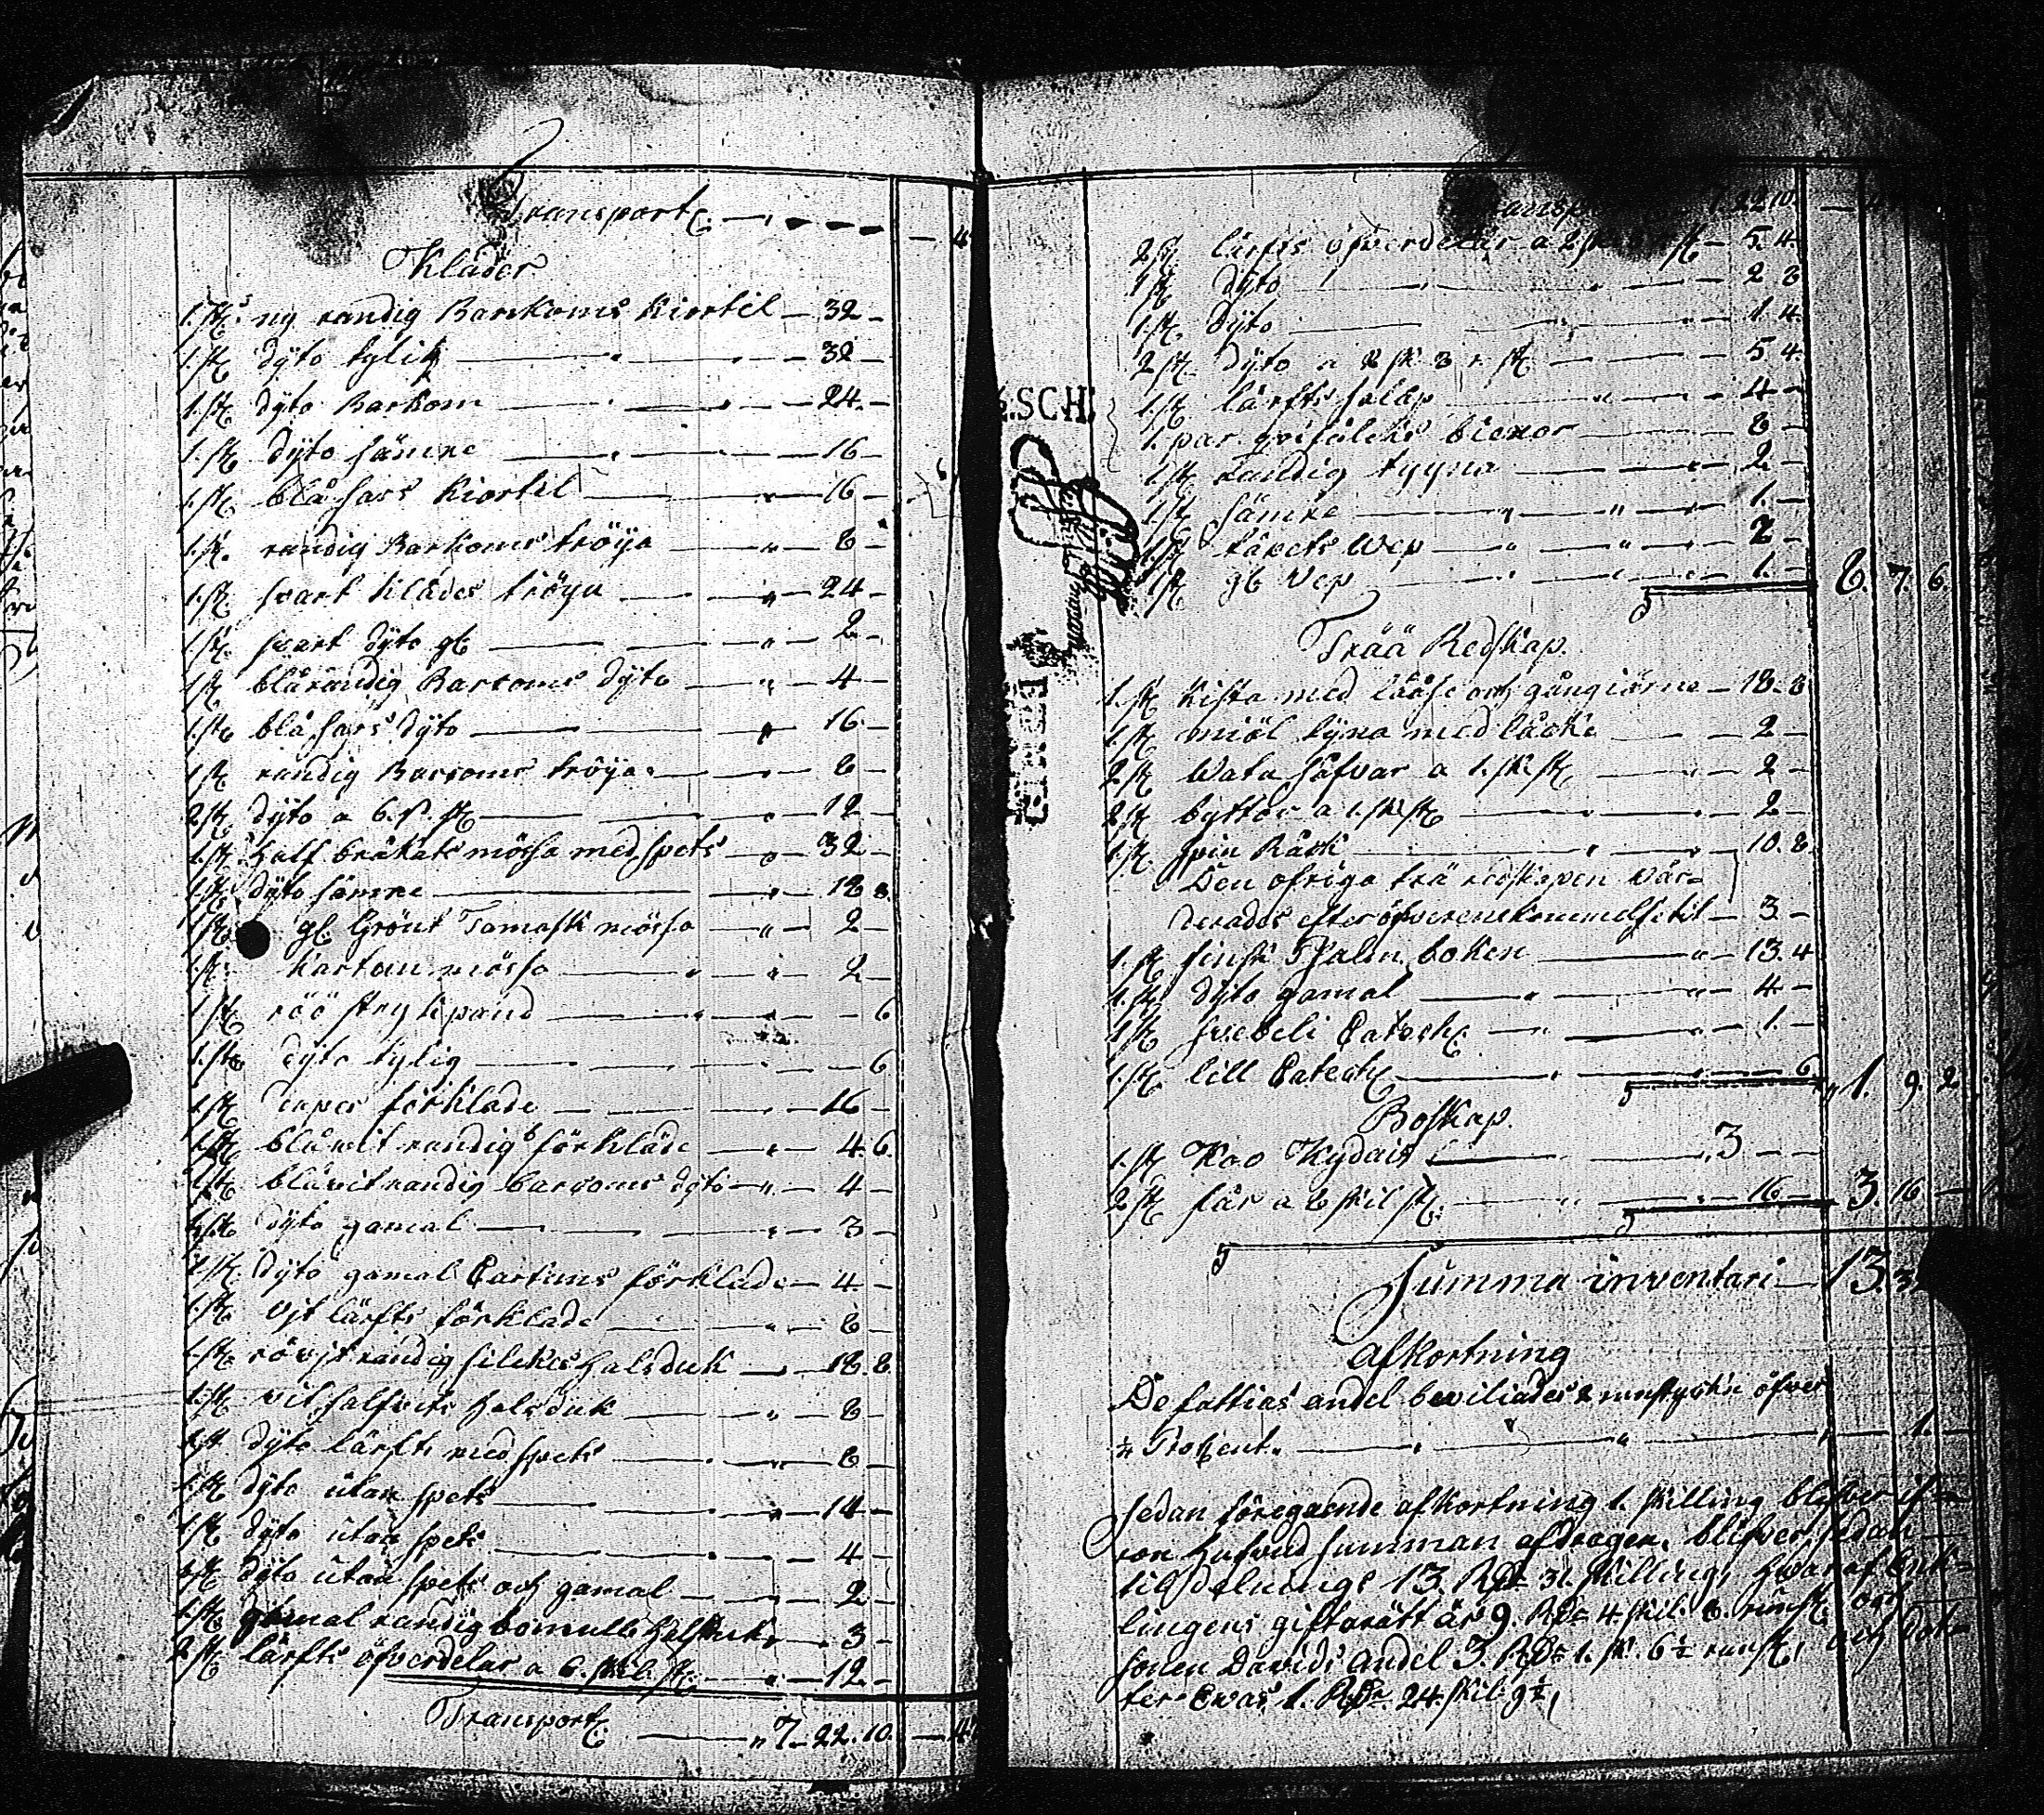 Transport
4
Kläder
1. st. ny randig Barkoms Kiortil 32
1. st. dÿto tylik 32
1. st. dÿto Barkom 24
1. st. dÿto sämre 16
1. st. blå sars Kiortil 16
1. st. randig Barkoms tröÿa 8
1. st. svart klädes tröÿa 24
1. st. svart dÿto gl 2
1. st. blårandig Barcoms dÿto 4
1. st. blå sars dÿto 16
1. st. randig Barcoms tröÿa 8
2 st. dÿto a 6. s. st. 12
1. st. half bråkats mössa med spets 32
1. st. dÿto sämre 18 8
1. st. gl. Grönt Tamask mössa 2
1. st. kartun mössa 2
1. st. röö stryk pand 6
1. st. dÿto tylig 6
1. st. förklade 16
1. st. blåwit randig förkläde 4 6
1. st. blåvit randig barcoms dÿto 4
1. st. dÿto gamal 3
1. st. dÿto gamal Cartuns förklade 4
1. st. vjt lärfts förklade 8
1. st. rövjt randig silckes halsduk 18 8
1. st. vit halsduk 8
1. st. dÿto lärfts med spets 8
1. st. dÿto utan spets 14
1. st. dÿto utan spets 4
1. st. dÿto utan spets och gamal 2
1. st. gamal randig bomulls halsduk 3
2 st. lärfts öfverdelar a 6. skil. st. 12
Transport 7 22 10
22 10
2 st. lärfts öfverdelar a 2 st. 5 4
1 st. dÿto 2 8
1. st. dÿto 1 4
2 st. dÿto a 2 sk 8 r. st. 5 4
1. st. lärfts 4
1. par 8
1. st. randig 2
1. st. sämre 1
1. st. Wep 2
1. st. gl Vep 1
8. 7. 6
Trää Redskap.
1. st. Kista med låse och gångiärne 18 8
1. st. miöl tÿna med låcke 2
2 st. Watu såfvar a 1. sk. st. 2
2 st. byttor a 1. sk st. 2
1. st. spin Råck 10. 8
Den öfriga trä redskapen vär-
derades efter öfverenskommelse til 3
1. st. finsk Psalm boken 13 4
1. st. dÿto gamal 4
1. st. Svebeli Catech 1
1. st. lill Catech 6
1. 9 2
Boskap.
1. st. Koo Kydait 3
2 st. får a 8 skil st. 16
3. 16
Summa inventari 13.
Afkortning
De fattias andel beviliades 2 runstycke öfver
Prosent 1.
Sedan föregaende afkortning 1. skilling blifver if-
ron hufvud summan afdragen, blifver sedan
til delnings 13. Rdr 31. skilling, hvaraf Enk-
lingens giftorätt är 9. Rdr 4 skil. 8. runst. och
sonen Davids andel 3. Rdr 1. sk. 6 ½ runst., och dot-
ter Ewas 1. Rdr 24. skil. 9 ½,